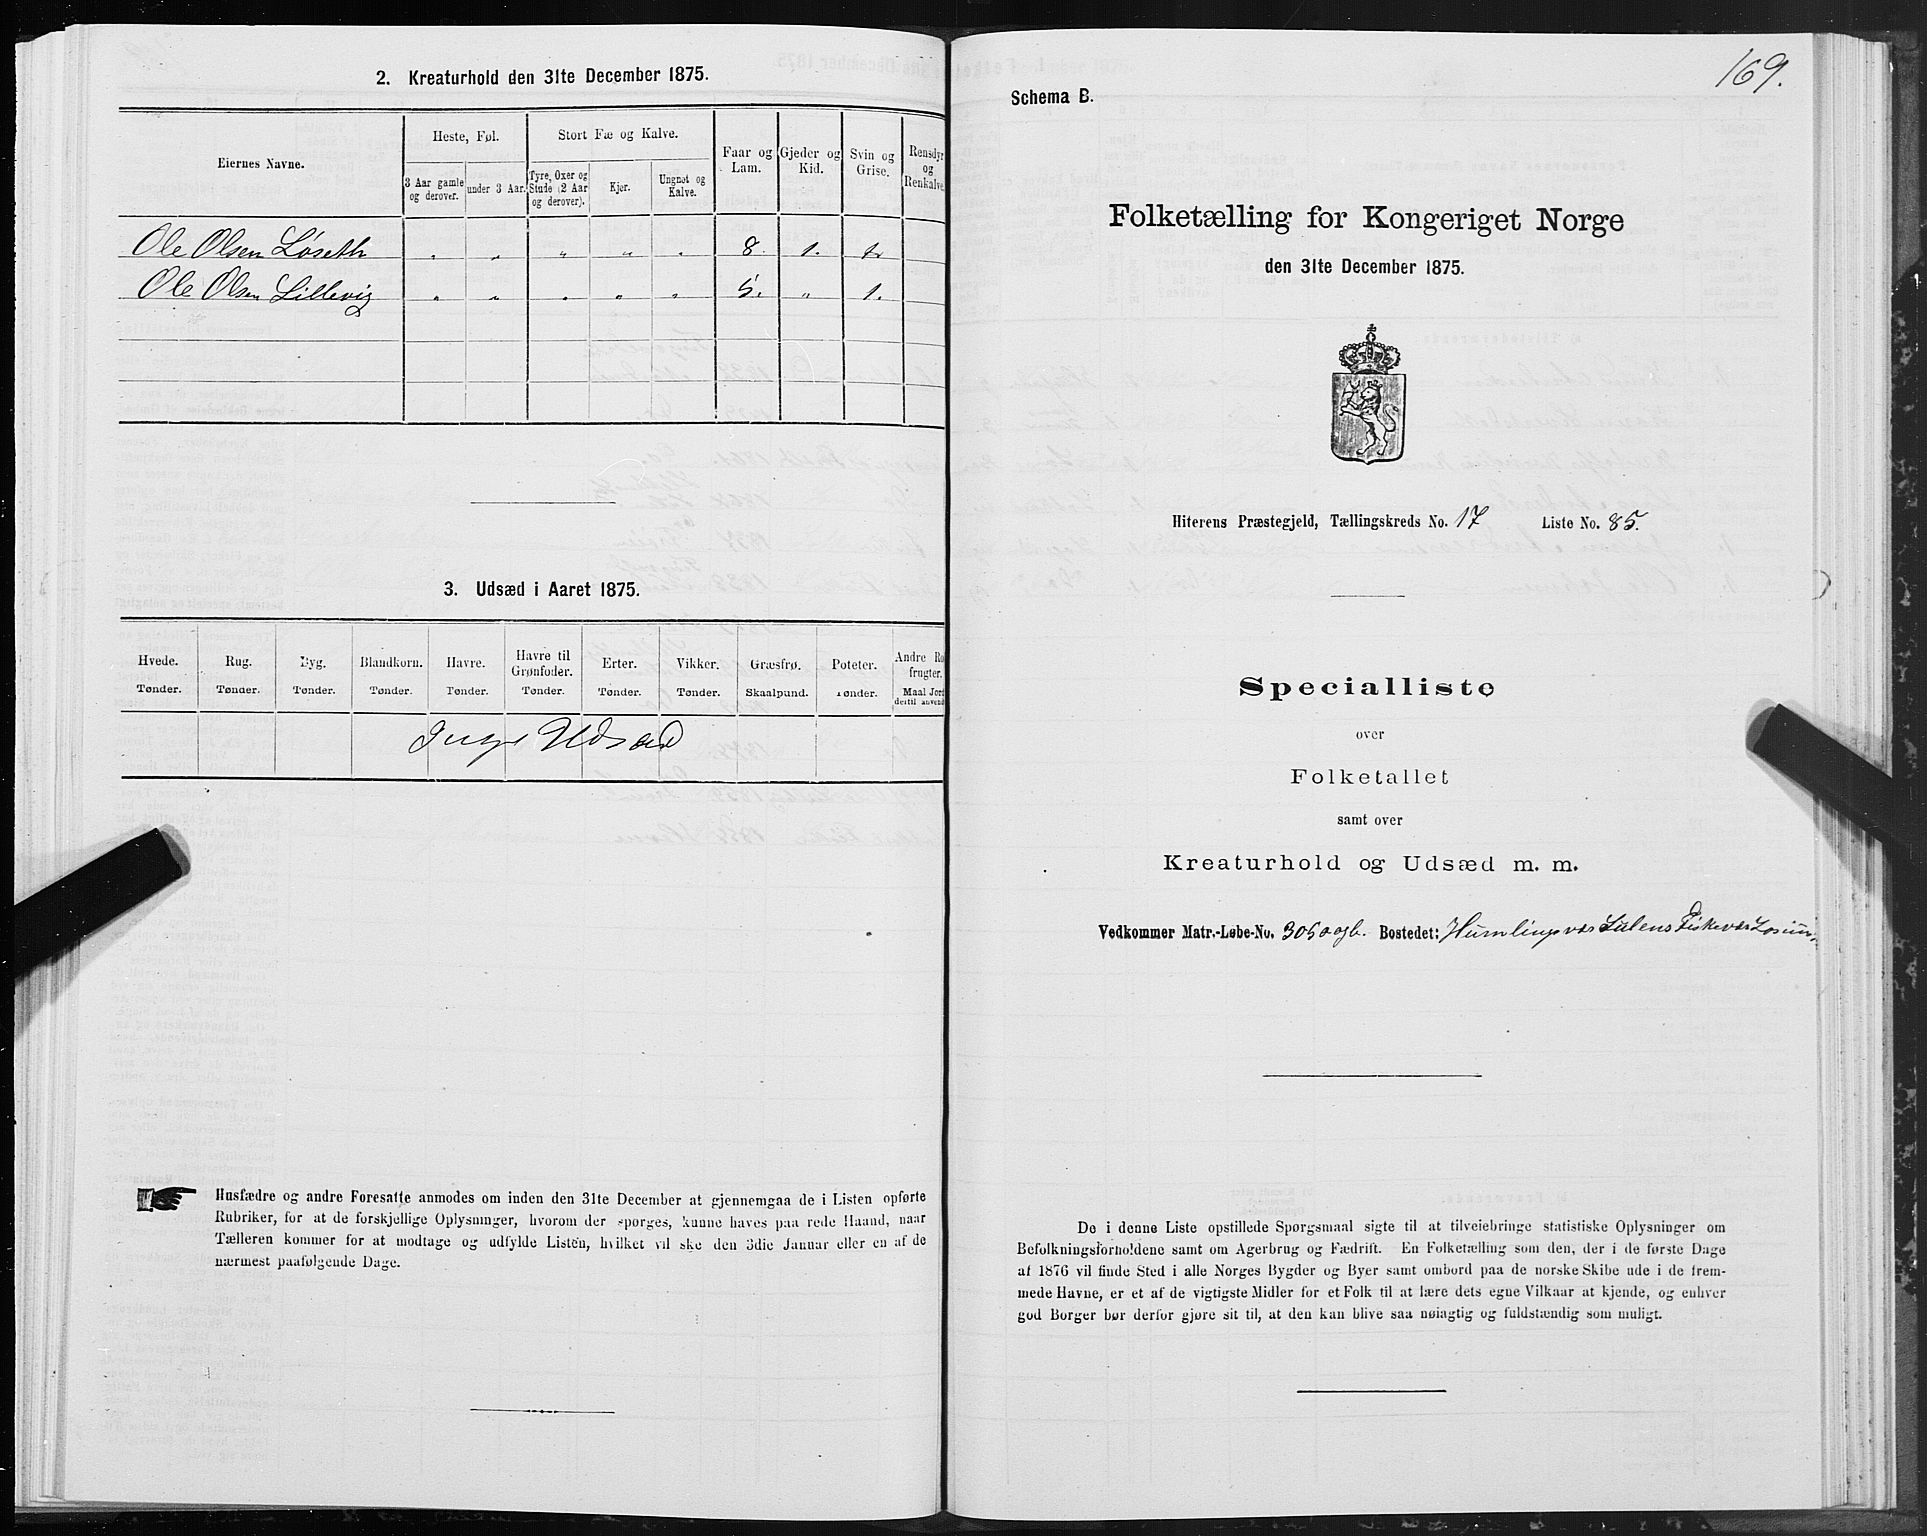 2. Kreaturhold den 31te December 1875.
Eiernes Navne.
Heste, Føl.
Stort Fæ og Kalve.
Faar og Lam.
Gjeder og Kid.
Svin og Grise.
Rensdyr og Renkalve.
3 Aar gamle og derover.
under 3 Aar.
Tyre, Oxer og Stude (2 Aar og derover).
Kjør.
Ungnøt og Kalve.
Ole Olsen Løseth " " " " " 8. 1. 1.
Ole Olsen Lillevig " " " " " 5. " 1.
3. Udsæd i Aaret 1875.
Hvede. Rug. Byg. Blandkorn. Havre. Havre til Grønfoder. Erter. Vikker. Græsfrø. Poteter. Andre Ro frugter.
Tønder. Tønder. Tønder. Tønder. Tønder. Tønder. Tønder. Tønder. Skaalpund. Tønder. Maal Jord dertil anvend
Inge Udsæd
Husfædre og andre Foresatte anmodes om inden den 31te December at gjennemgaa de i Listen opførte
Rubriker, for at de forskjellige Oplysninger, hvorom der spørges, kunne haves paa rede Haand, naar
Tælleren kommer for at modtage og udfylde Listen, hvilket vil ske den 3die Januar eller en af de
nærmest paafølgende Dage.
169.
Schema B.
Folketælling for Kongeriget Norge
den 31te December 1875.
Hiterens Præstegjeld, Tællingskreds No. 17 Liste No. 85.
Specialliste
over
Folketallet
samt over
Kreaturhold og Udsæd m. m.
Vedkommer Matr.-Løbe-No. 305 a og b. Bostedet: Humlingsvær Fiskevær
De i denne Liste opstillede Spørgsmaal sigte til at tilveiebringe statistiske Oplysninger om
Befolkningsforholdene samt om Agerbrug og Fædrift. En Folketælling som den, der i de første Dage
af 1876 vil finde Sted i alle Norges Bygder og Byer samt ombord paa de norske Skibe ude i de frem-
mede Havne, er et af de vigtigste Midler for et Folk til at lære dets egne Vilkaar at kjende, og enhver
god Borger bør derfor gjøre sit til, at den kan blive saa nøiagtig og fuldstændig som muligt.